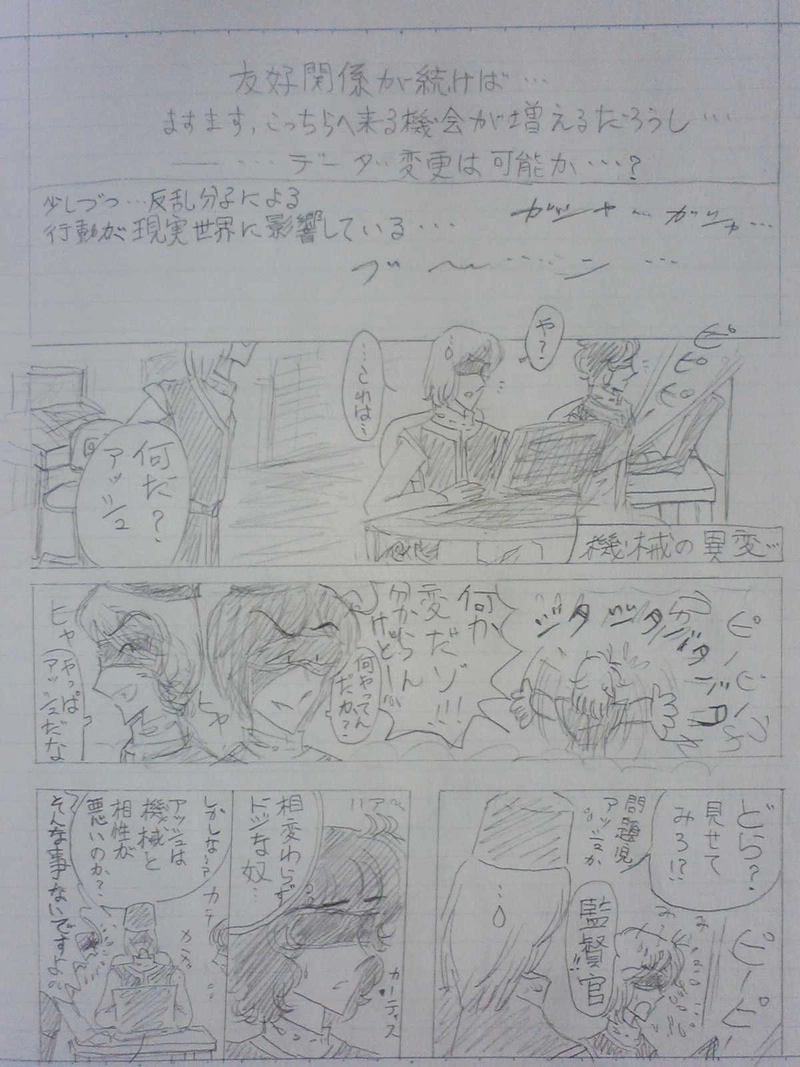 友好関係が続けば…
ますます、こっちらへ来る機会が増えるだろうし…
――…データ変更は可能か…？
少しづつ…反乱分子による
行動が、現実世界に影響している…
ガシャ…ガシャ…
ブ～……ン…
ピピピ
や？
…これは…
何だ？
アッシュ
機械の異変…
ピーピーピー
ジタバタ
何か
変だゾ!!!
分からん
けどー!!!
何やってん
だか？
ヒャ
ヒャ
やっぱ
アッシュだな
どら？
見せて
みろ!?
問題児
アッシュか
監督官!!
ピーピ
ハァ～
相変わらず
ドジな奴…
カーティス
しかしなァ
アッシュは
機械と
相性が
悪いのか？
カチ
カチ
そんな事ないですよ